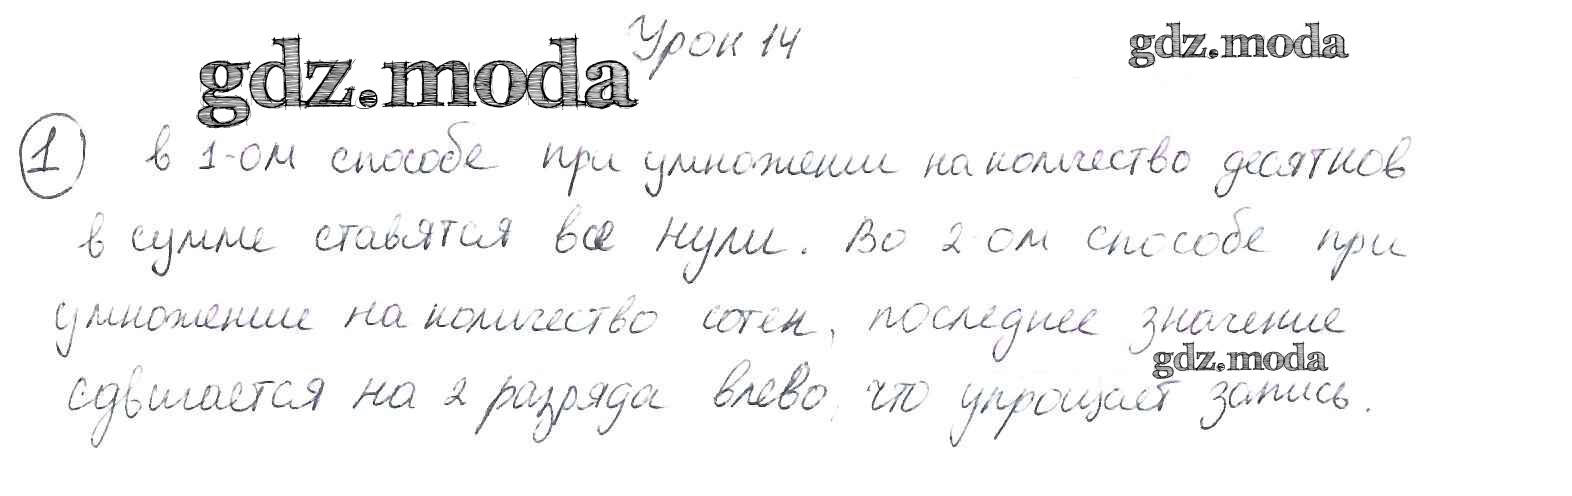 Урок 14
gdz.moda
gdz.moda
1 в 1-ом способе при умножении на количество десятков
в сумме ставятся все нули. Во 2-ом способе при
умножение на количество сотен, последнее значение
gdz.moda
сдвигается на 2 разряда влево, что упрощает запись.